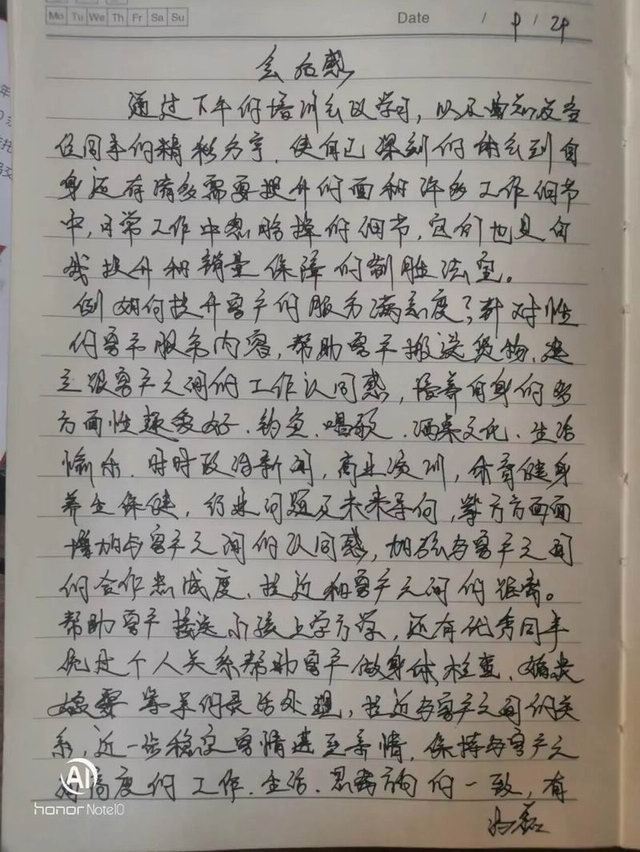 Mo Tu We Th Fr Sa Su
Date / 9 / 24
会后感
通过下午的培训会及学习，以及
位同事们精彩分享，使自己深刻的体会到自
身还存诸多需要提升的面和许多工作细节
中，日常工作中忽略掉的细节，它们也是自
我提升和销量保障的制胜法宝。
例如何提升客户的服务满意度？针对性
的客户服务内容，帮助客户搬送货物，建
立跟客户之间的工作认同感，培养自身的多
方面性趣爱好、钓鱼、唱歌、酒桌文化、生活
愉乐、时时政治新闻，商业演训，体育健身
养生保健，行业问题及未来导向，等方方面面
增加与客户之间的认同感，加强与客户之间
的合作忠诚度，拉近和客户之间的距离。
帮助客户接送小孩上学方学，还有优秀同事
个人关系帮助客户做身体检查、婚丧
嫁娶等等的灵活处理，拉近与客户之间的关
系，近一步稳定客情进至亲情，保持与客户之
高度的工作、生活、思路方向的一致，有
AI
honor Note10